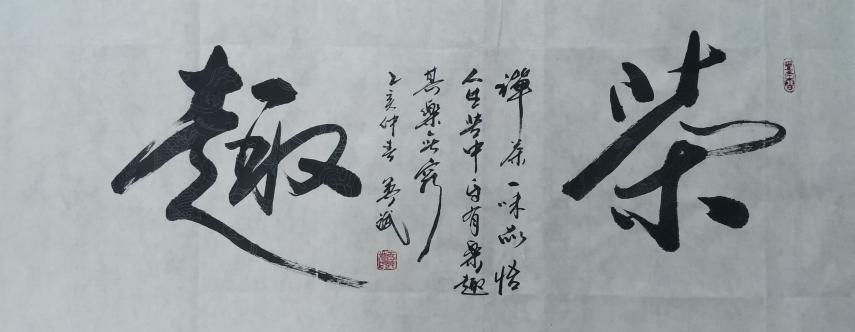 茶
禅茶一味品悟
人生苦中自有乐趣
其乐无穷
乙亥仲春
趣